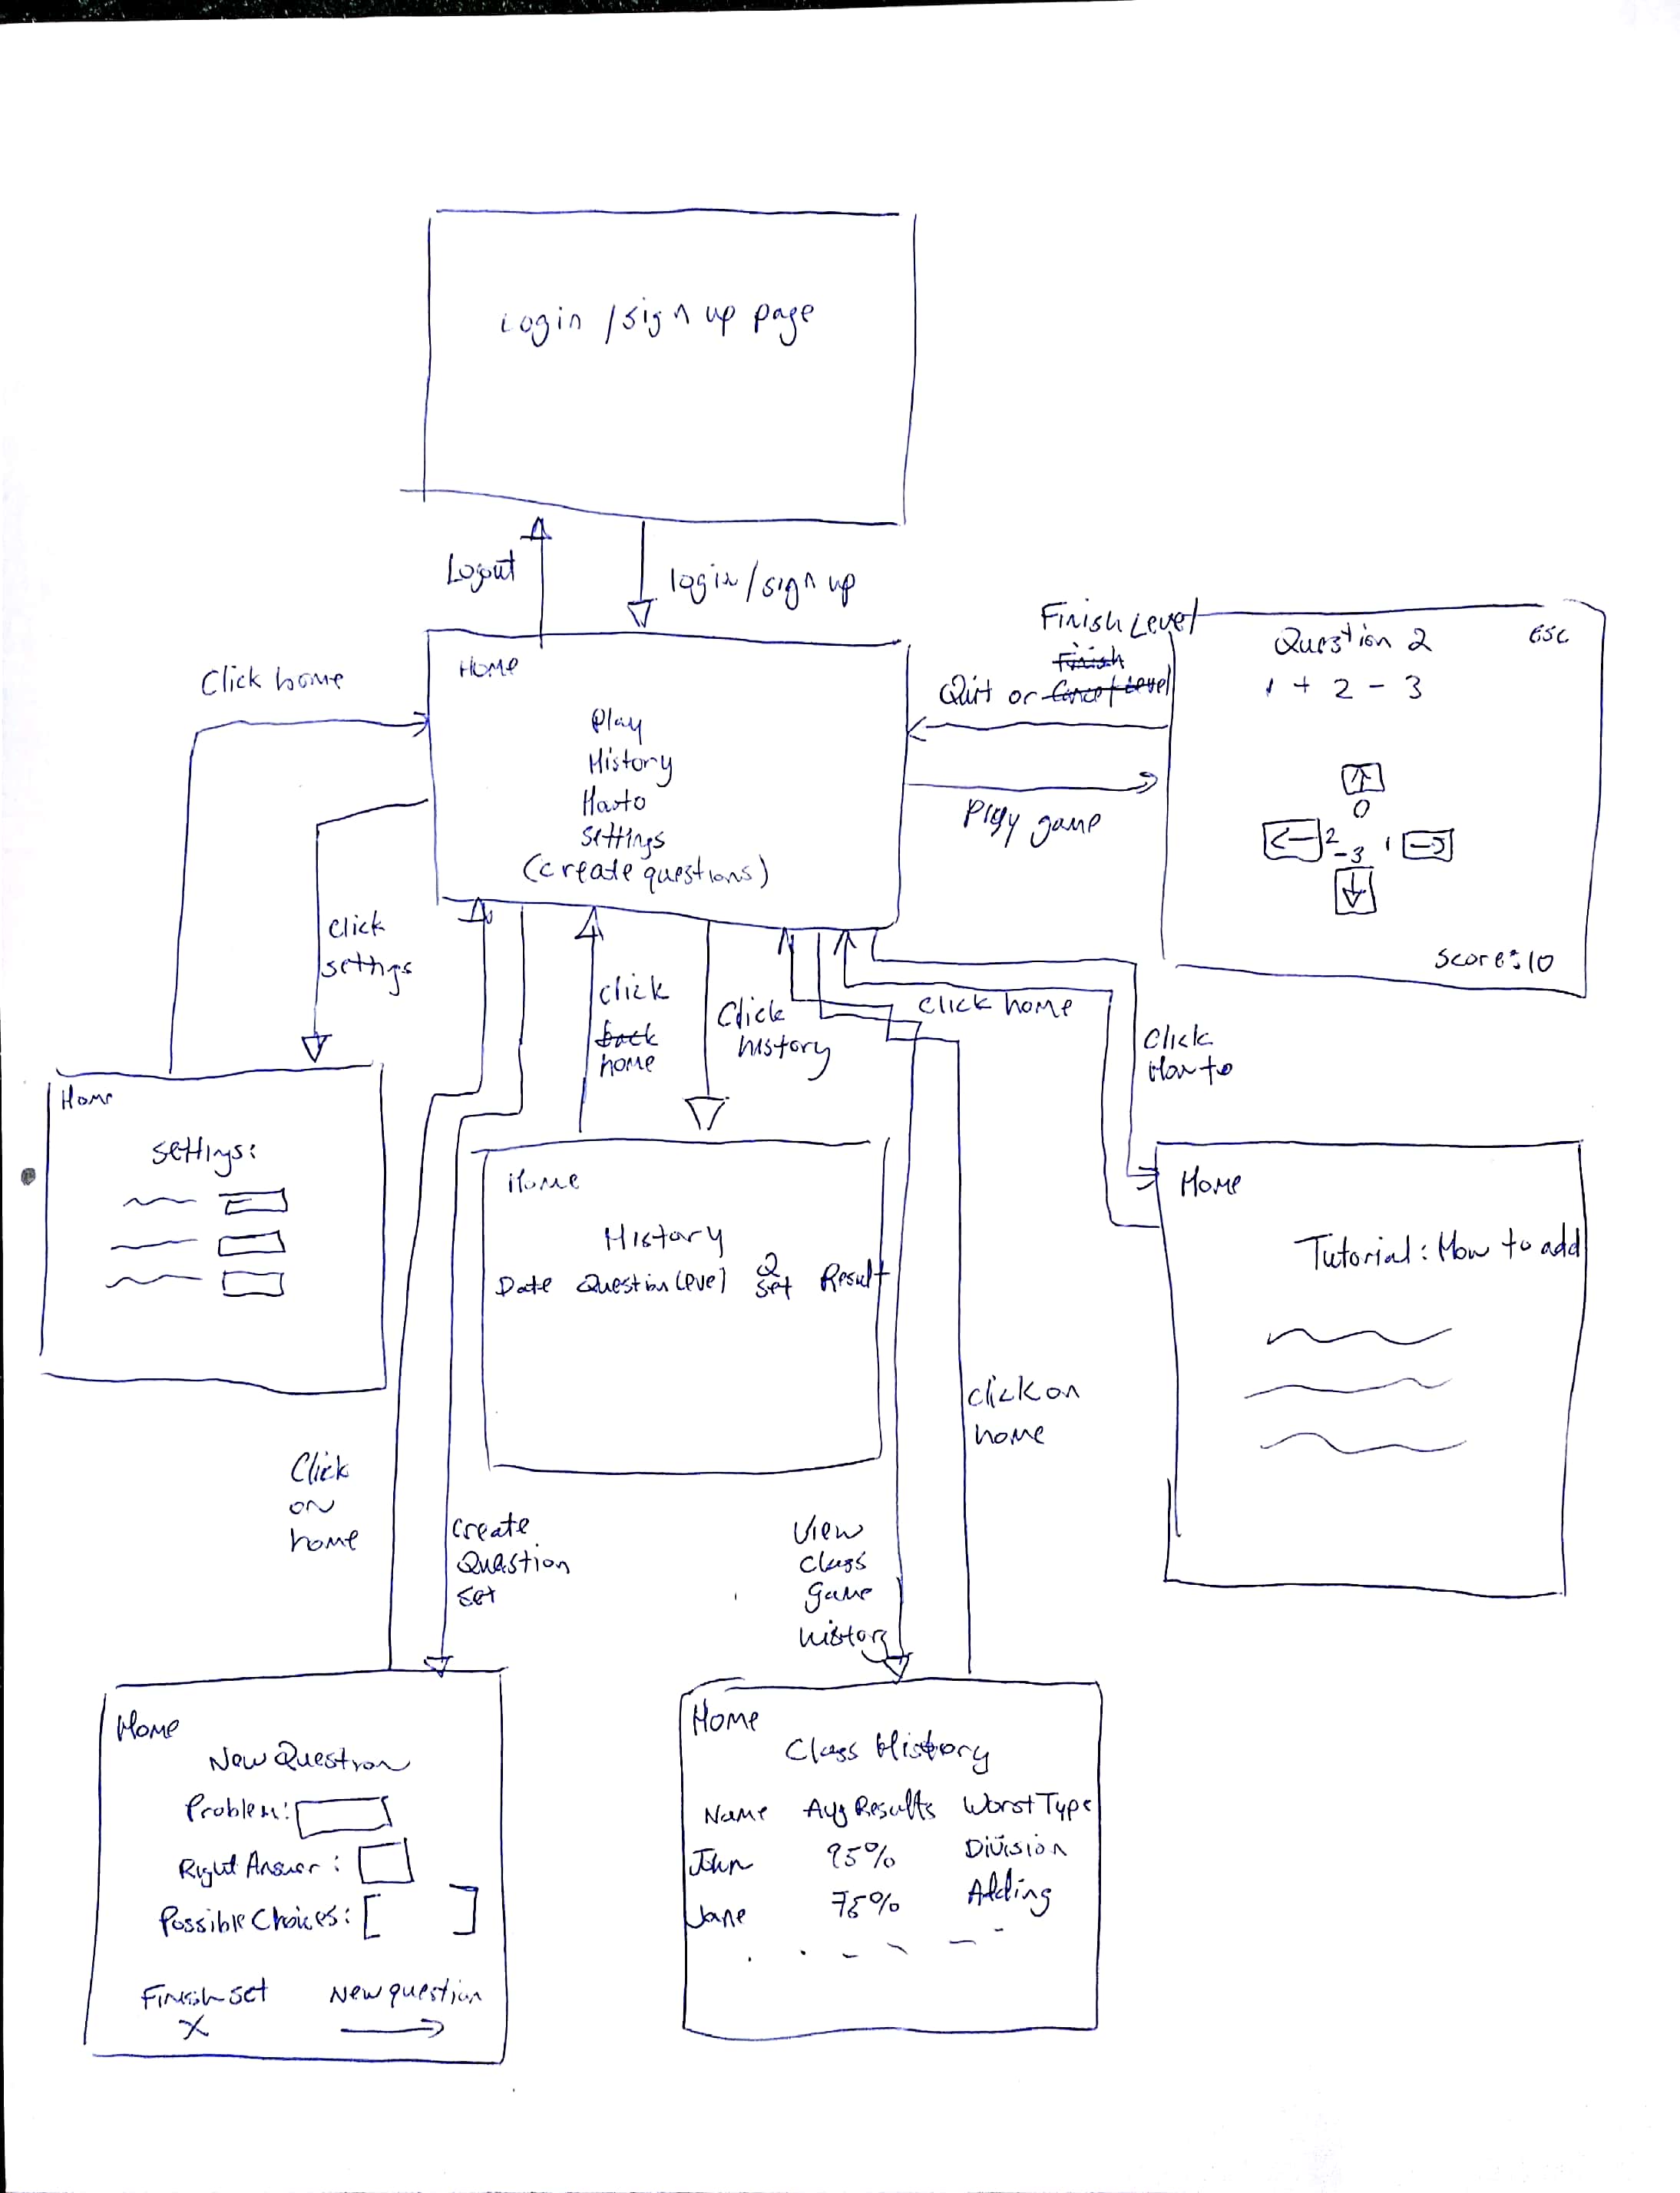 Login / sign up page
Logout
login / sign up
Home
Play
History
How to
settings
(create questions)
Click home
click
settings
Finish Level
Finish
Quit or Cancel Level
Play game
Question 2
ESC
1 + 2 - 3
0
2
1
-3
Score: 10
click
back
home
Click
history
click home
Click
How to
Home
settings:
Home
History
Date Question Level Q Set Result
Home
Tutorial: How to add
Click
on
home
create
Question
set
View
class
game
history
click on
home
Home
New Question
Problem:
Right Answer:
Possible Choices: [ ]
Finish set
X
New question
Home
Class History
Name Avg Results Worst Type
John 95% Division
Jane 75% Adding